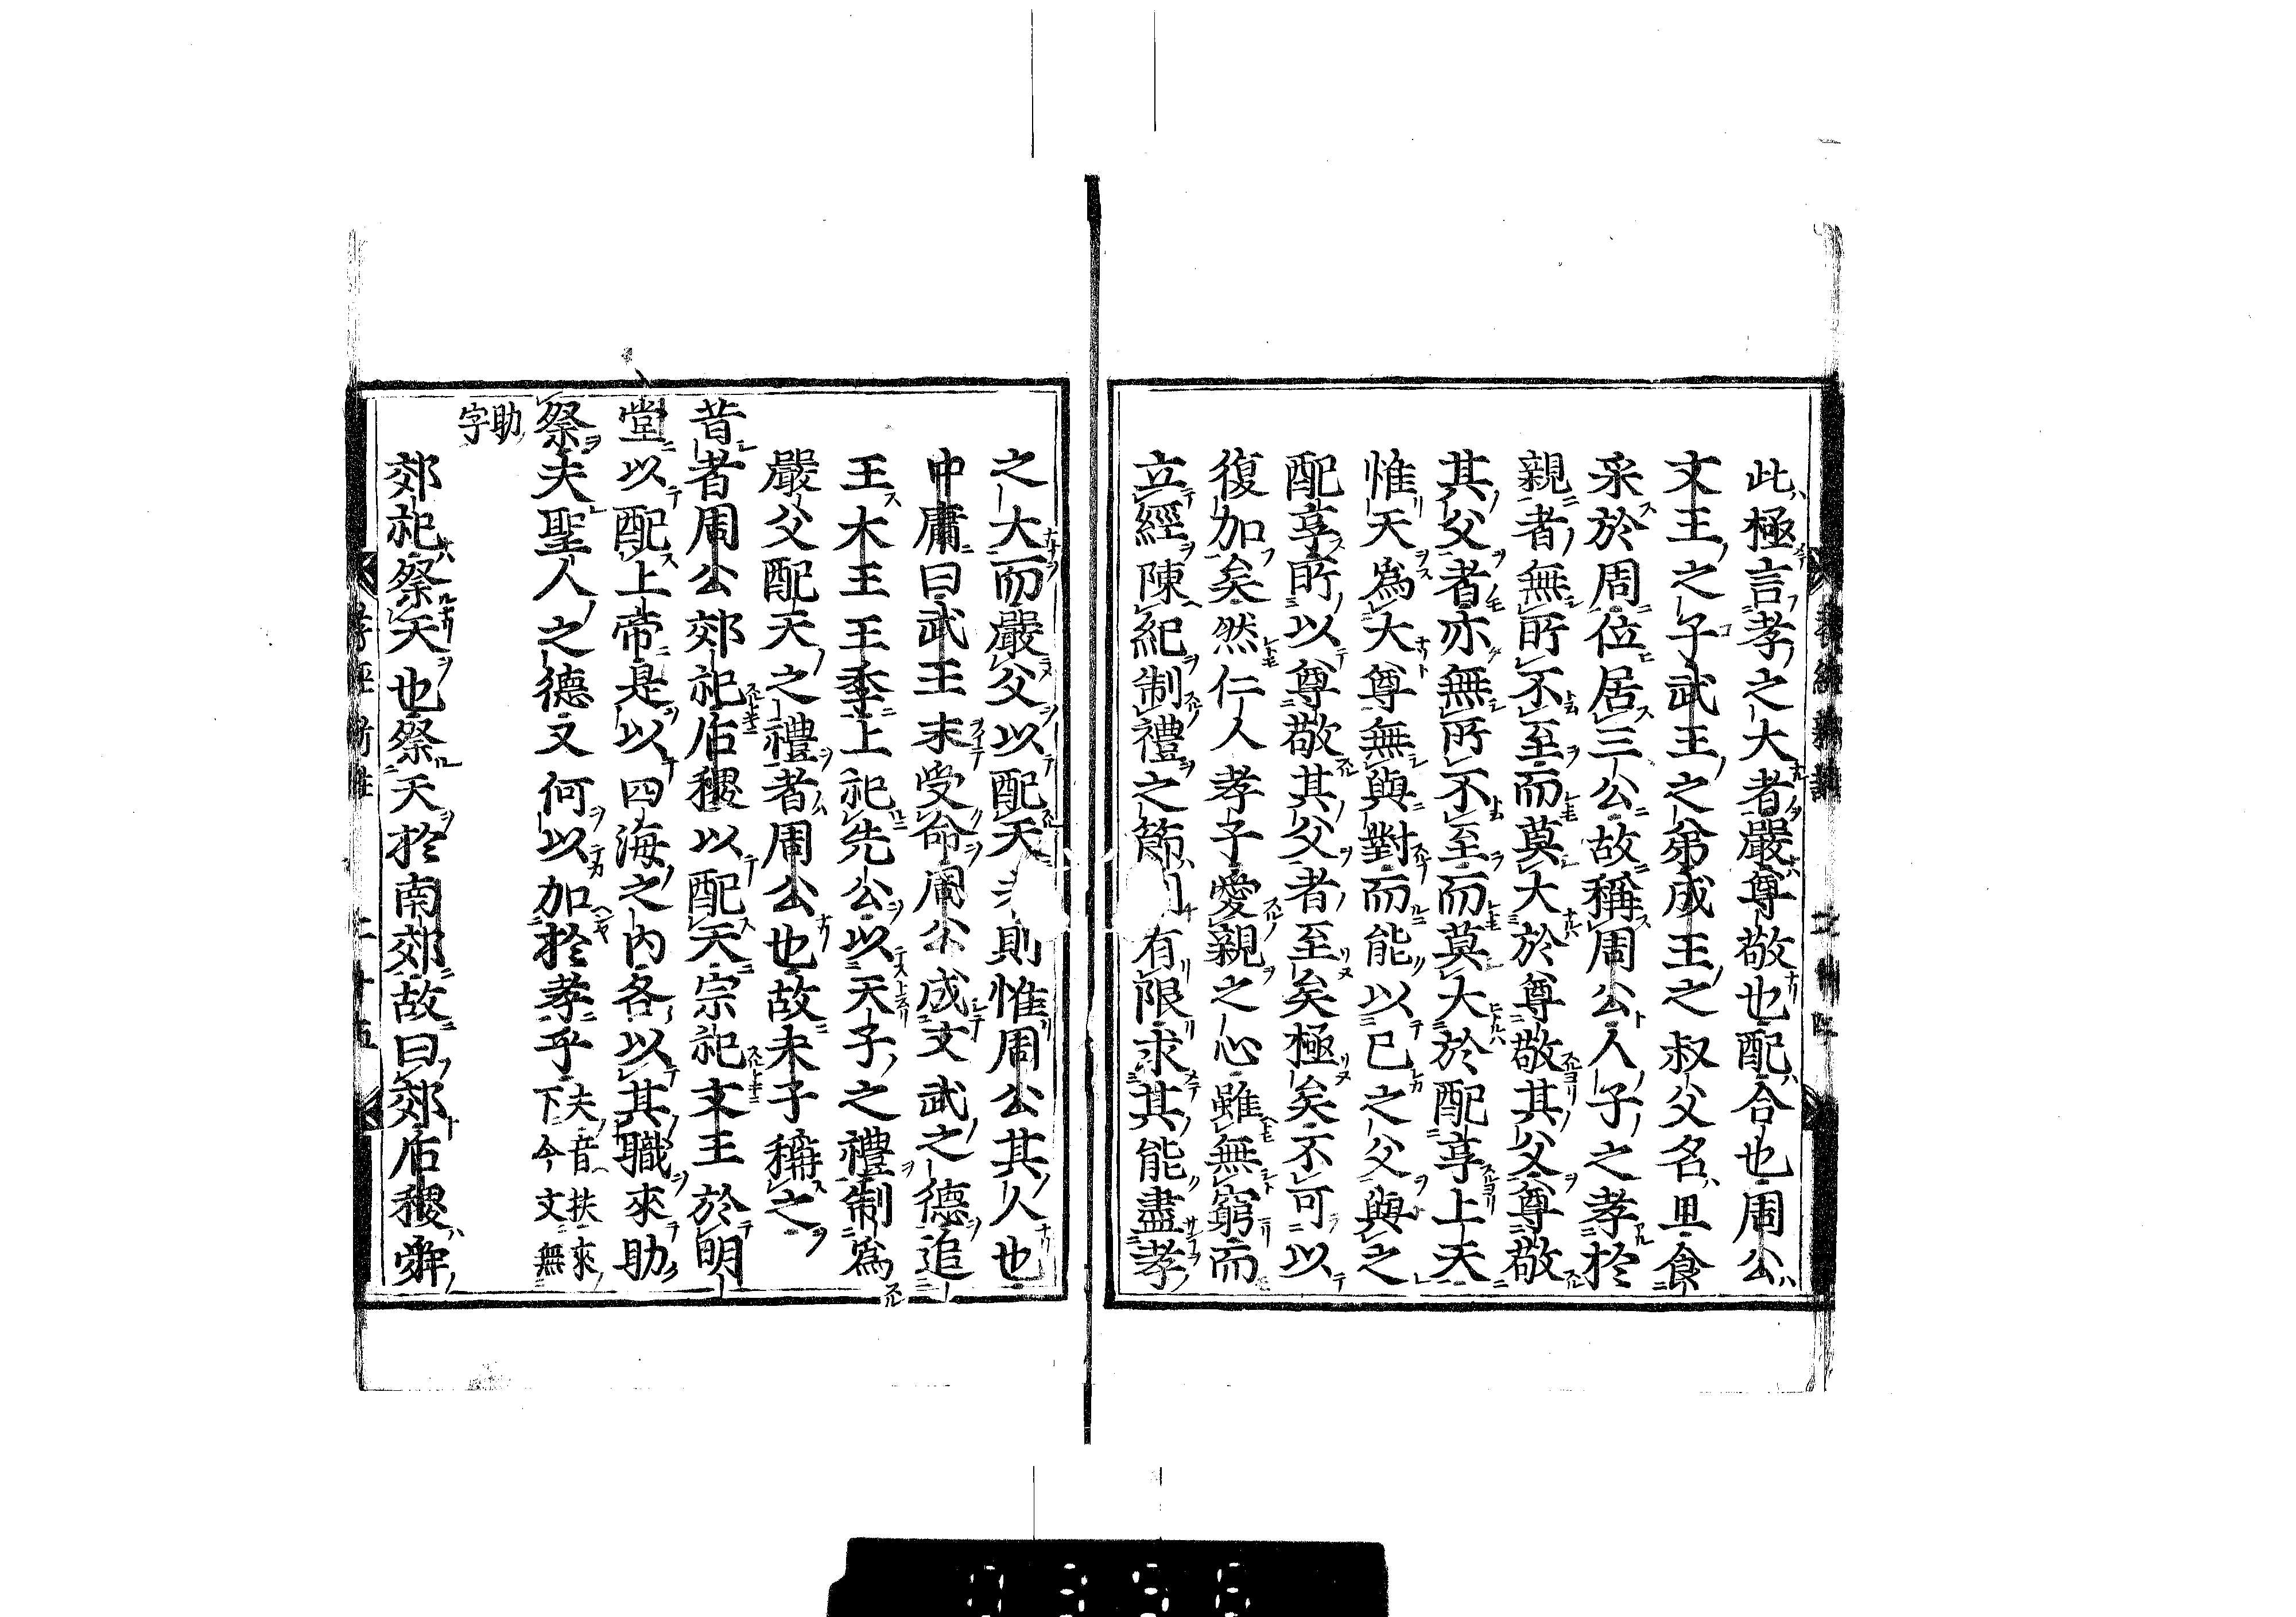 此極言孝之大者嚴尊敬也配合也周公
文王之子武王之弟成王之叔父名旦食
采於周位居三公故稱周公人子之孝於
親者無所不至而莫大於尊敬其父尊敬
其父者亦無所不至而莫大於配享上天
惟天爲大尊無與對而能以己之父與之
配享所以尊敬其父者至矣極矣不可以
復加矣然仁人孝子愛親之心雖無窮而
立經陳紀制禮之節有限求其能盡孝
之大而嚴父以配天則惟周公其人也
中庸曰武王末受命周公成文武之德追
王大王王季上祀先公以天子之禮制爲
嚴父配天之禮者周公也故夫子稱之
昔者周公郊祀后稷以配天宗祀文王於明
堂以配上帝是以四海之內各以其職來助
祭夫聖人之德又何以加於孝乎夫音扶來下今文無
助字
郊祀祭天也祭天於南郊故曰郊后稷舜